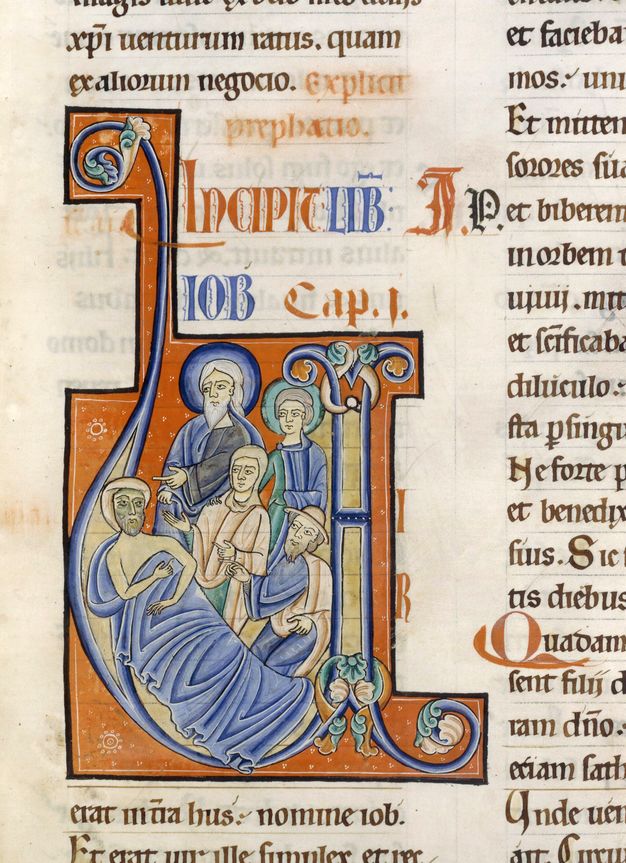 xp̄i uenturum ratus. quam
ex aliorum negocio. Explicit
prephatio.
INCIPIT LIB̄:
IOB Cap. I.
erat in t̄ra hus: nomine iob.
Et erat uir ille simplex et rec
et facieba
mos: uni
Et mitten
sorores sua
et biberen
in orbem
et sc̄ificaba
diluculo:
sta p singu
Ne forte p
et benedix
sius. Sic
tis diebus
Quadam
sent filij d
ram dn̄o.
eciam sath
Unde uen